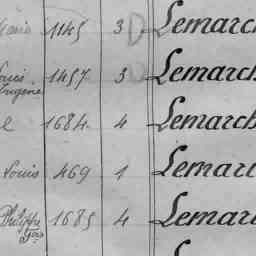 1145 3 D Lemarch
Louis
Eugene 1457 3 Lemarch
e 1684 4 Lemarch
Louis 469 1 Lemarc
Philippe
Fçois 1685 4 Lemar